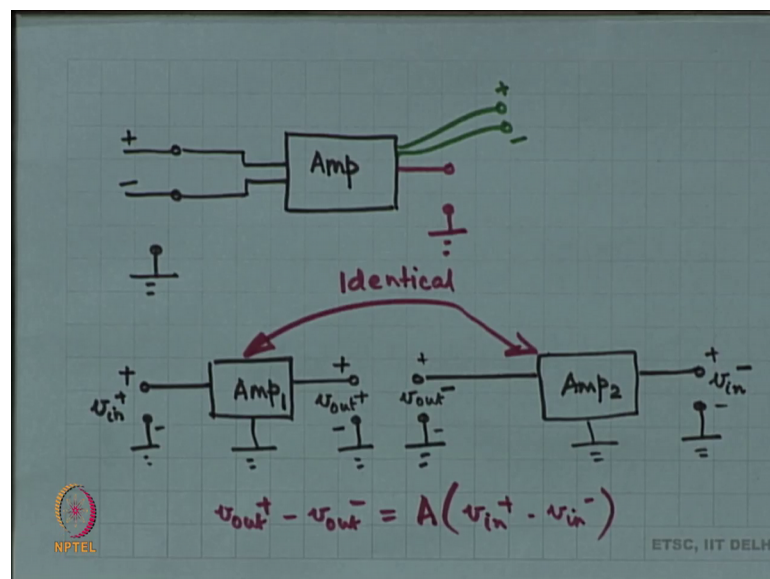 +
+
-
Amp
-
Identical
+ Amp₁ + + Amp₂ +
v_in⁺ v_out⁺ v_out⁻ v_in⁻
- - - -
v_out⁺ - v_out⁻ = A(v_in⁺ - v_in⁻)
NPTEL
ETSC, IIT DELH